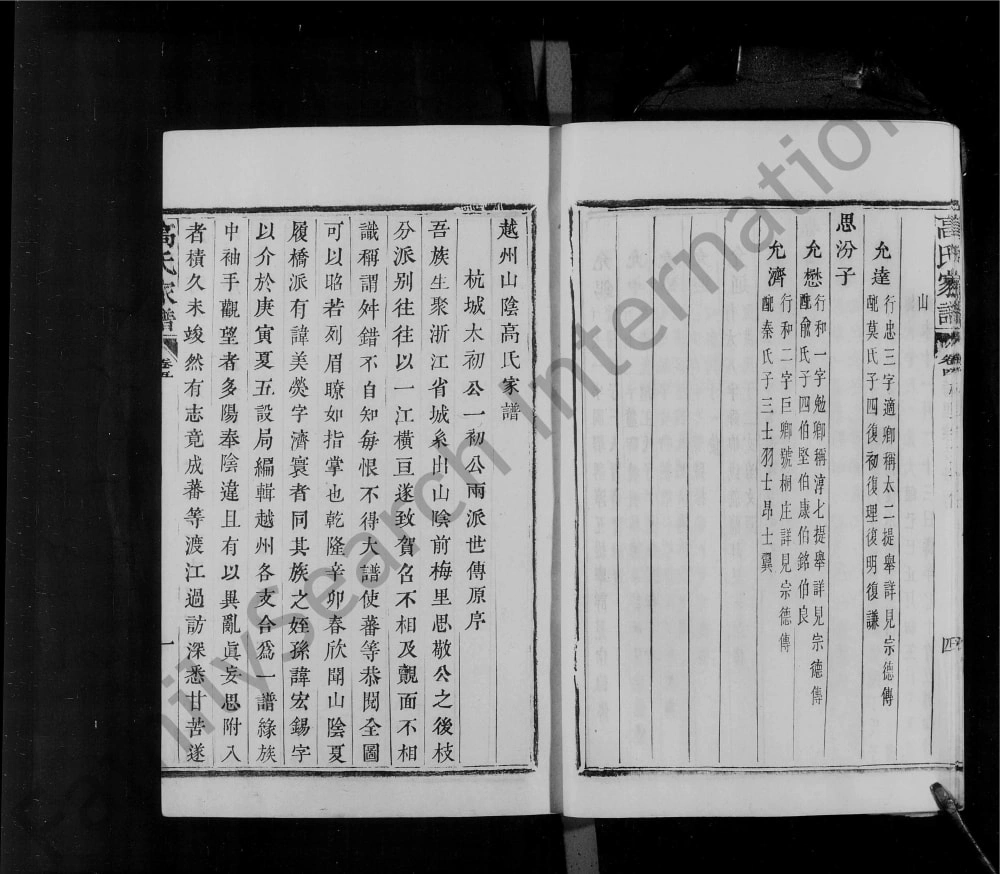 山
允達
行忠三字適卿稱太二提舉詳見宗德傳
配莫氏子四復初復理復明復謙
思汾子
允懋
行和一字勉卿稱淳七提舉詳見宗德傳
配俞氏子四伯堅伯康伯銘伯良
允濟
行和二字巨卿號桐庄詳見宗德傳
配秦氏子三士羽士昂士翼
四
越州山陰高氏家譜
杭城太初公一初公兩派世傳原序
吾族生聚浙江省城系出山陰前梅里思敬公之後枝
分派別往往以一江橫亘遂致賀召不相及覿面不相
識稱謂舛錯不自知每恨不得大譜使蕃等恭閱全圖
可以昭若列眉瞭如指掌也乾隆辛卯春欣聞山陰夏
履橋派有諱美熒字濟寰者同其族之姪孫諱宏錫字
以介於庚寅夏五設局編輯越州各支合爲一譜緣族
中袖手觀望者多陽奉陰違且有以異亂眞妄思附入
者積久未竣然有志竟成蕃等渡江過訪深悉甘苦遂
高氏家譜
卷五
一
高氏家譜
FamilySearch International